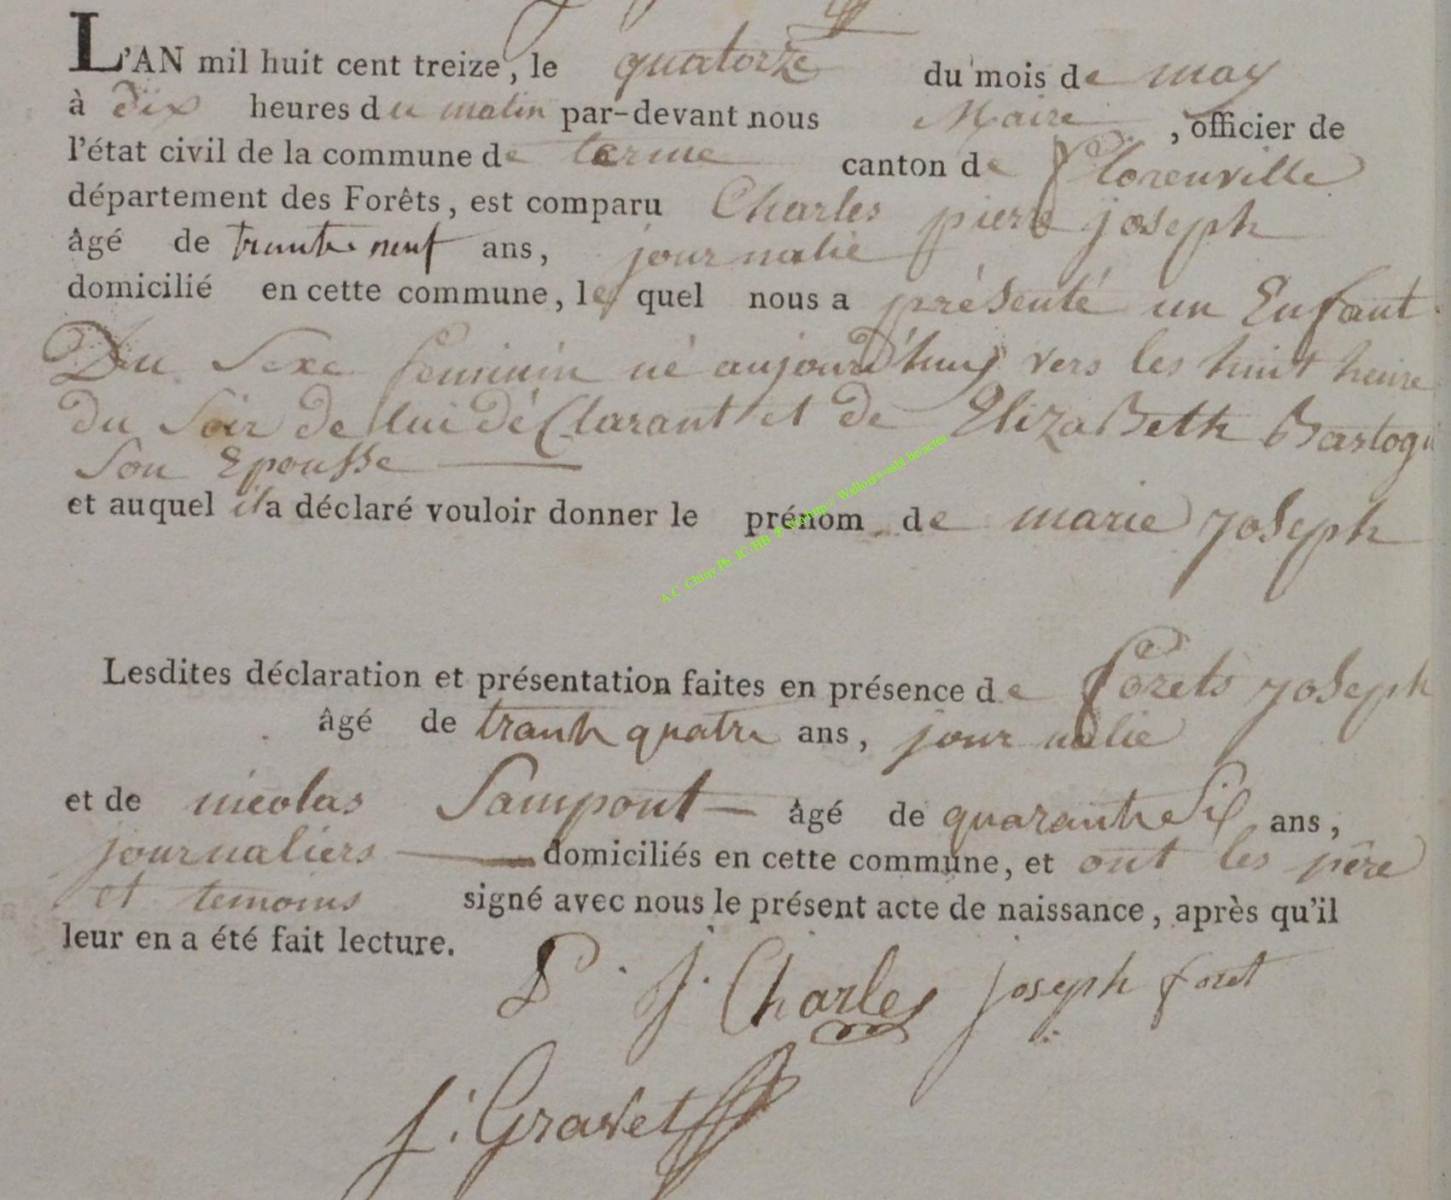 L'AN mil huit cent treize, le quatorze du mois de may
à dix heures du matin par-devant nous Maire, officier de
l'état civil de la commune de terme canton de florenville
département des Forêts, est comparu Charles pierre joseph
âgé de trente neuf ans, journalie
domicilié en cette commune, lequel nous a présenté un Enfant
Du Sexe feminin né aujourd'huy vers les huit heure
du Soir de lui déClarant et de ElizaBeth Bastogn
Son Epousse
et auquel il a déclaré vouloir donner le prénom de marie joseph
Lesdites déclaration et présentation faites en présence de forets joseph
âgé de trante quatre ans, journalie
et de nicolas Sampont âgé de quarante Six ans,
journaliers domiciliés en cette commune, et ont les père
et temoins signé avec nous le présent acte de naissance, après qu'il
leur en a été fait lecture.
P. j. Charles joseph foret
j. Gravet